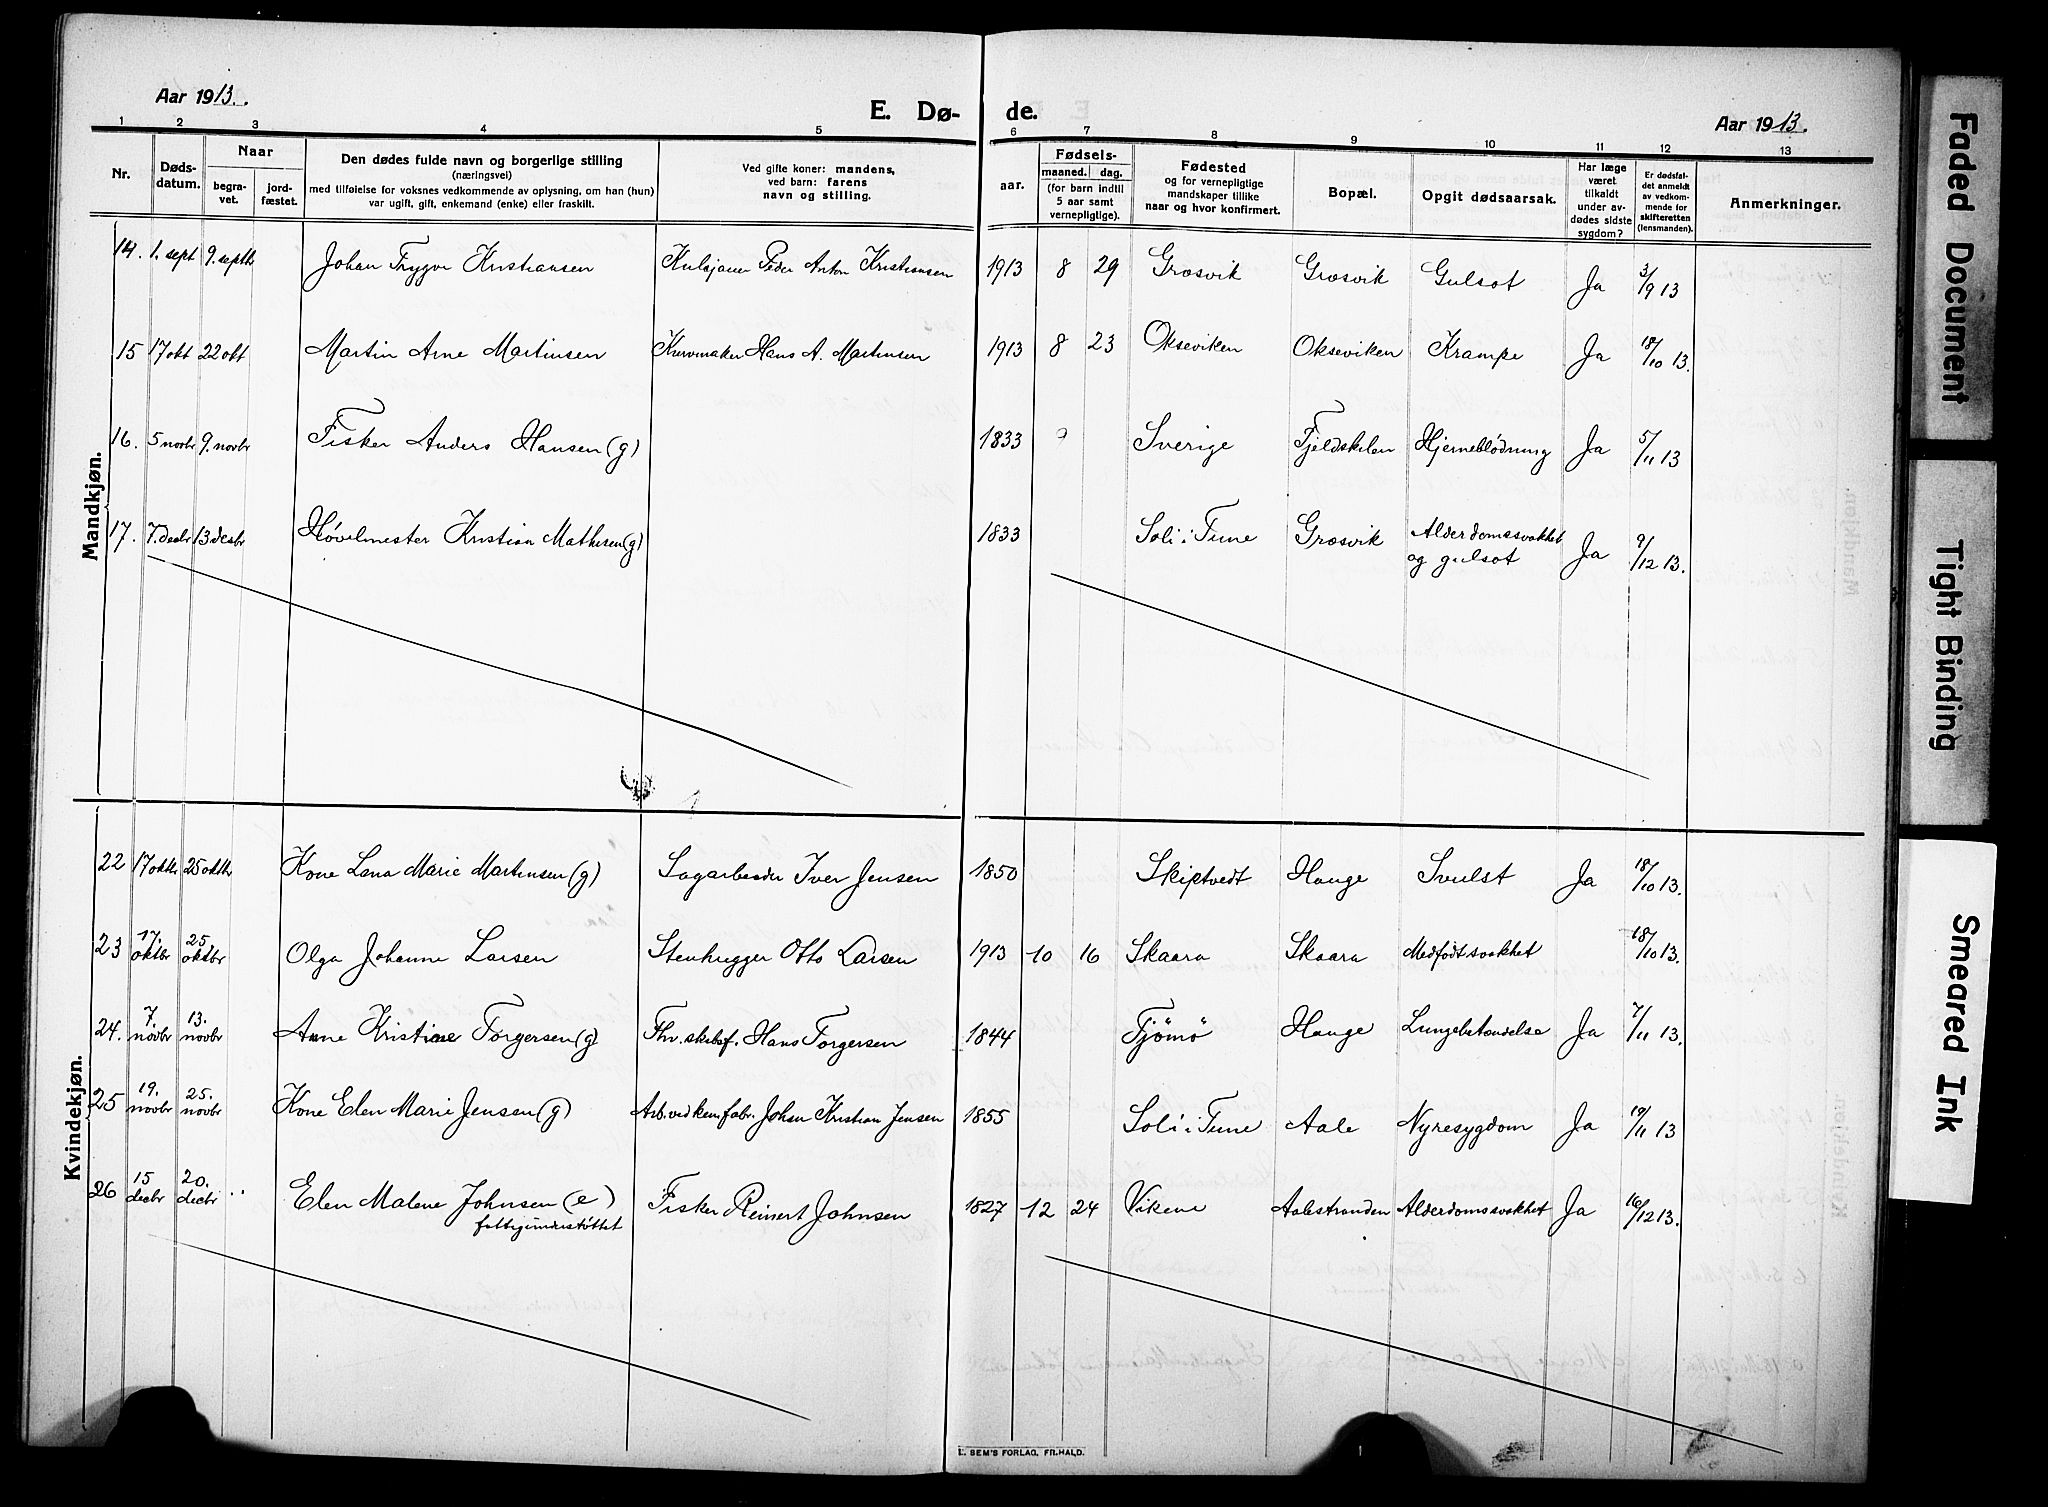 Aar 1913.
E. Dø- de.
Aar 1913.
1 2 3 4 5 6 7 8 9 10 11 12 13
Nr.
Døds-
datum.
Naar
begra-
vet.
jord-
fæstet.
Den dødes fulde navn og borgerlige stilling
(næringsvei)
med tilføielse for voksnes vedkommende av oplysning, om han (hun)
var ugift, gift, enkemand (enke) eller fraskilt.
Ved gifte koner: mandens,
ved barn: farens
navn og stilling.
aar.
Fødsels-
maaned. dag.
(for barn indtil
5 aar samt
vernepligtige).
Fødested
og for vernepligtige
mandskaper tillike
naar og hvor konfirmert.
Bopæl.
Opgit dødsaarsak.
Har læge
været
tilkaldt
under av-
dødes sidste
sygdom?
Er dødsfal-
det anmeldt
av vedkom-
mende for
skifteretten
(lensmanden).
Anmerkninger.
Mandkjøn.
14. 1. sept 9. septbr Johan Trygve Kristiansen Peder Anton Kristiansen 1913 8 29 Græsvik Græsvik Gulsot Ja 3/9 13
15 17 okt 22 okt Martin Arne Martinsen Kurvmaker Hans A. Martinsen 1913 8 23 Okseviken Okseviken Krampe Ja 18/10 13.
16. 5 novbr 9. novbr Fisker Anders Hansen (g) 1833 Sverige Fjeldskilen Hjerneblødning Ja 5/11 13
17. 7. decbr 13 decbr Høvelmester Kristian Mathisen (g) 1833 Soli i Tune Græsvik Alderdomssvakhet
og gulsot Ja 9/12 13.
Kvindekjøn.
22 17 oktbr 25 oktbr Kone Lena Marie Martinsen (g) Sagarbeider Iver Jensen 1850 Skiptvedt Hauge Svulst Ja 18/10 13.
23 17. oktbr 25. oktbr Olga Johanne Larsen Stenhugger Otto Larsen 1913 10 16 Skaara Skaara Medfødt svakhet 18/10 13.
24. 7. novbr 13. novbr Anne Kristine Torgersen (g) Fhv. skibsf. Hans Torgersen 1844 Tjømø Hauge Lungebetændelse Ja 7/11 13.
25 19. novbr 25. novbr Kone Elen Marie Jensen (g) Arb. ved kem. fabr. Johan Kristian Jensen 1855 Soli i Tune Aale Nyresygdom Ja 19/11 13
26 15 decbr 20. decbr Elen Malene Johnsen (e)
fattigunderstøttet Fisker Reinert Johnsen 1827 12 24 Vikene Aalestranden Alderdomssvakhet Ja 16/12 13.
E. SEM'S FORLAG, FR.HALD.
Faded Document
Tight Binding
Smeared Ink